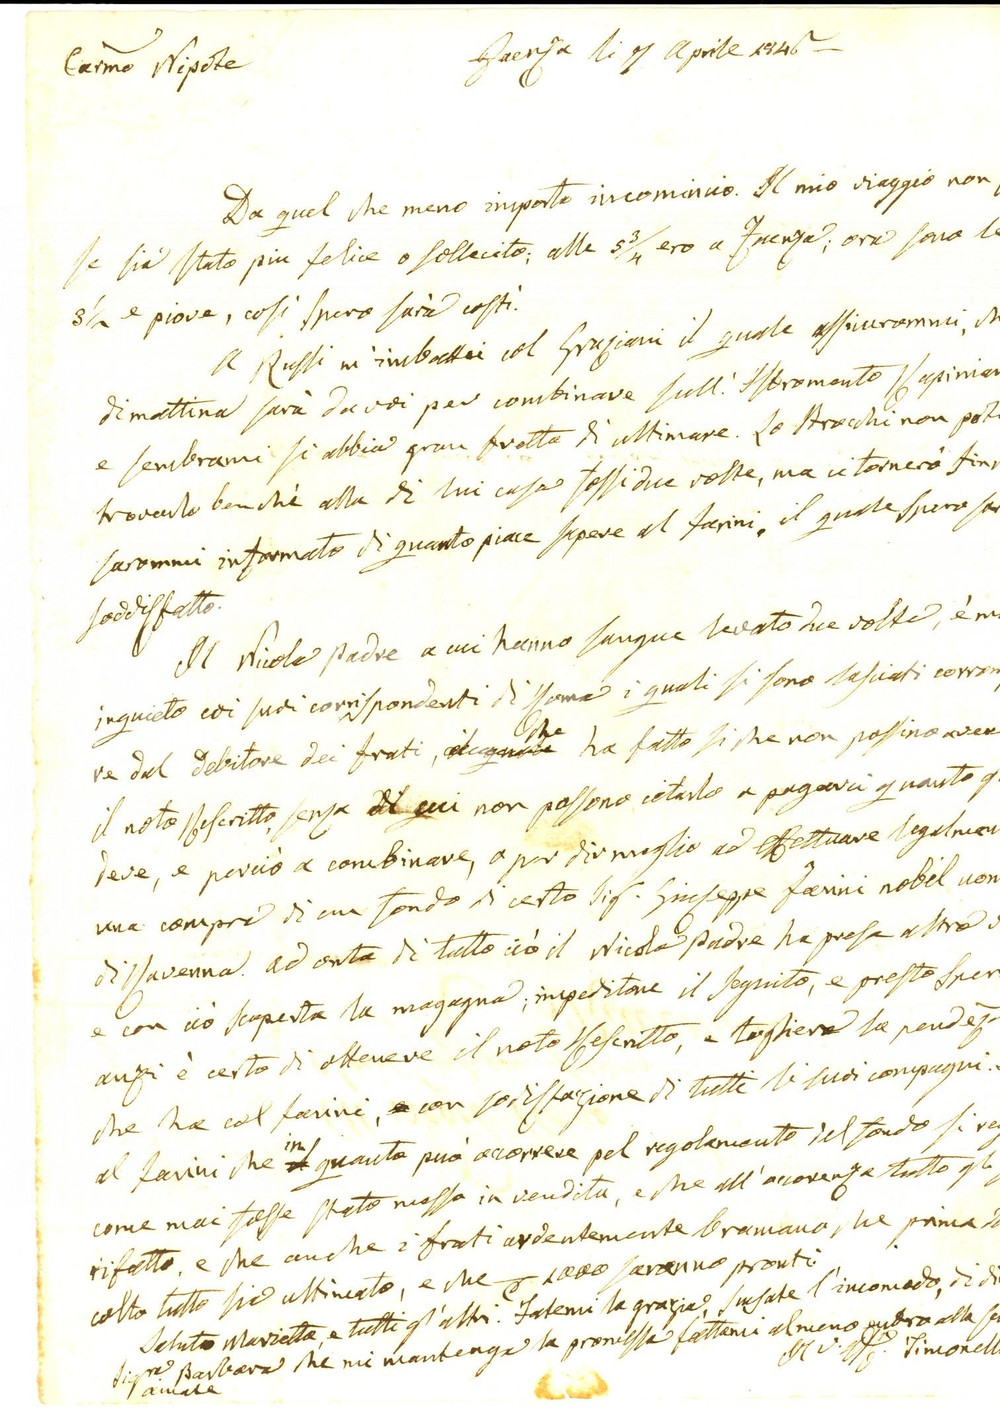 Carmo Nipote
Faenza li 7 Aprile 1846
Da quel che meno importa incomincio. Il mio viaggio non
se sia stato più felice o sollecito; alle 5 3/4 ero a Faenza; ora sono le
8 1/2 e piove, così spero sarà costì.
A Russi m'imbattei col Graziani il quale assicurommi, ch
dimattina sarà da voi per combinare sull'Istromento Raspinian
e sembrami si abbia gran fretta di ultimare. Lo Strocchi non pot
trovarlo benchè alla di lui casa fossi due volte, ma ci tornerò fin
sarommi informato di quanto piace sapere al Farini, il quale spero sar
soddisfatto.
Il Nicola Padre a cui hanno sangue levato due volte, è m
inquieto coi suoi corrispondenti di Roma i quali si sono lasciati corrom
re dal debitore dei frati, che ha fatto si che non possino avere
il noto Rescritto, senza di cui non possono iotarlo a pagarci quanto
deve, e perciò a combinare, o per dir meglio ad effettuare legalmen
una compra di un fondo di certo Sig. Giuseppe Farini nobil uom
di Ravenna. ad onta di tutto ciò il Nicola Padre ha presa altra
e con ciò scoperta la magagna; impeditone il seguito, e presto sper
anzi è certo di ottenere il noto Rescritto, e togliere la pendenz
che ha col Farini, con sodisfazione di tutti li suoi compagni.
al Farini che in quanto può occorrere pel regolamento del fondo si re
come mai fosse stato messo in vendita, e che all'occorenza tutto gli
rifatto, e che anche i frati ardentemente bramano, che prima
colto tutto sia ultimato, e che 1000 saranno pronti
Saluto Marietta, e tutti gl'altri. Fatemi la grazia, scusate l'incomodo, di di
Sigra Barbara che mi mantenga la promessa fattami almeno alla
amate
Timonell